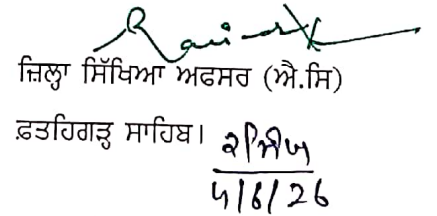 ਜ਼ਿਲ੍ਹਾ ਸਿੱਖਿਆ ਅਫਸਰ (ਐ.ਸਿ)
ਫ਼ਤਹਿਗੜ੍ਹ ਸਾਹਿਬ।
5/6/26